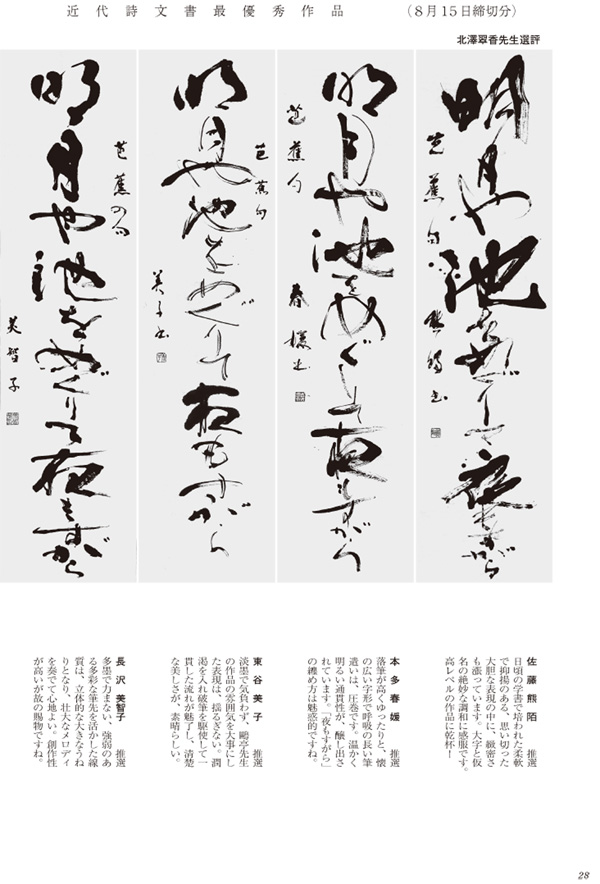 近代詩文書最優秀作品　（８月１５日締切分）
北澤翠香先生選評
明月や池をめぐりて夜もすがら
芭蕉句　熊陌書
明月や池をめぐりて夜もすがら
芭蕉句
春媛書
明月や池をめぐりて夜もすがら
芭蕉句
美子書
明月や池をめぐりて夜もすがら
芭蕉の句
美智子
佐藤熊陌　推選
日頃の学書で培われた柔軟
で抑揚のある、思い切った
大胆な表現の中に、緻密さ
も漲っています。大字と仮
名の絶妙な調和に感服です。
高レベルの作品に乾杯！
本多春媛　推選
落筆が高くゆったりと、懐
の広い字形で呼吸の長い筆
遣いは、圧巻です。温かく
明るい通貫性が、醸し出さ
れています。「夜もすがら」
の纏め方は魅惑的ですね。
東谷美子　推選
淡墨で気負わず、鷗亭先生
の作品の雰囲気を大事にし
た表現は、揺るぎない。潤
渇を入れ破筆を駆使して一
貫した流れが魅了し、清楚
な美しさが、素晴らしい。
長沢美智子　推選
多墨で力まない、強弱のあ
る多彩な筆先を活かした線
質は、立体的な大きなうね
りとなり、壮大なメロディ
を奏でて心地よい。創作性
が高いが故の賜物ですね。
28